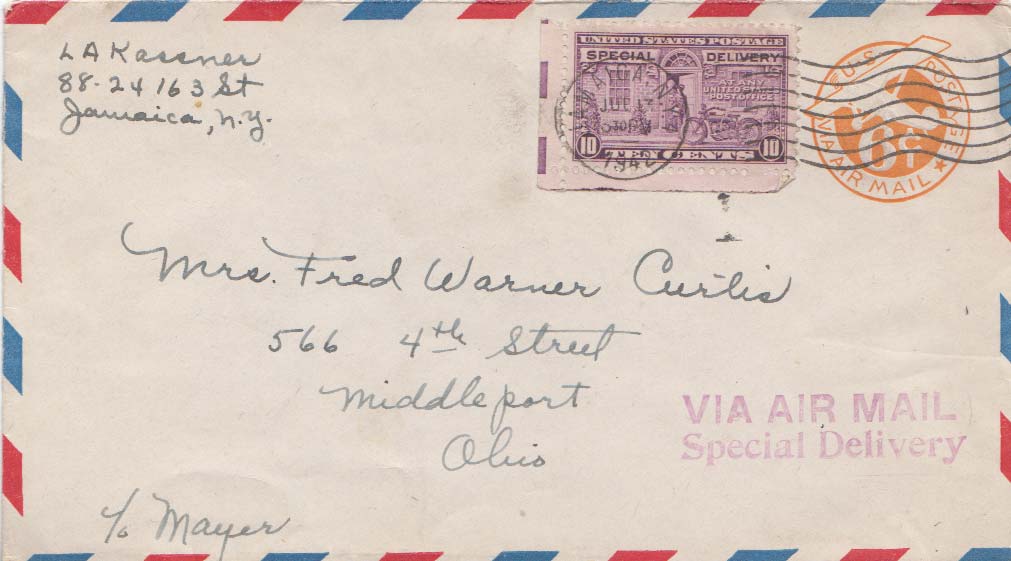 L A Kassner
88-24 163 St
Jamaica, N.Y.
UNITED STATES POSTAGE
SPECIAL DELIVERY
AT ANY
UNITED STATES
POST OFFICE
10 TEN CENTS 10
JUL 17
530 PM
1942
U.S. POSTAGE
6¢
VIA AIR MAIL
Mrs. Fred Warner Curtis
566 4th Street
Middleport
Ohio
VIA AIR MAIL
Special Delivery
c/o Mayer